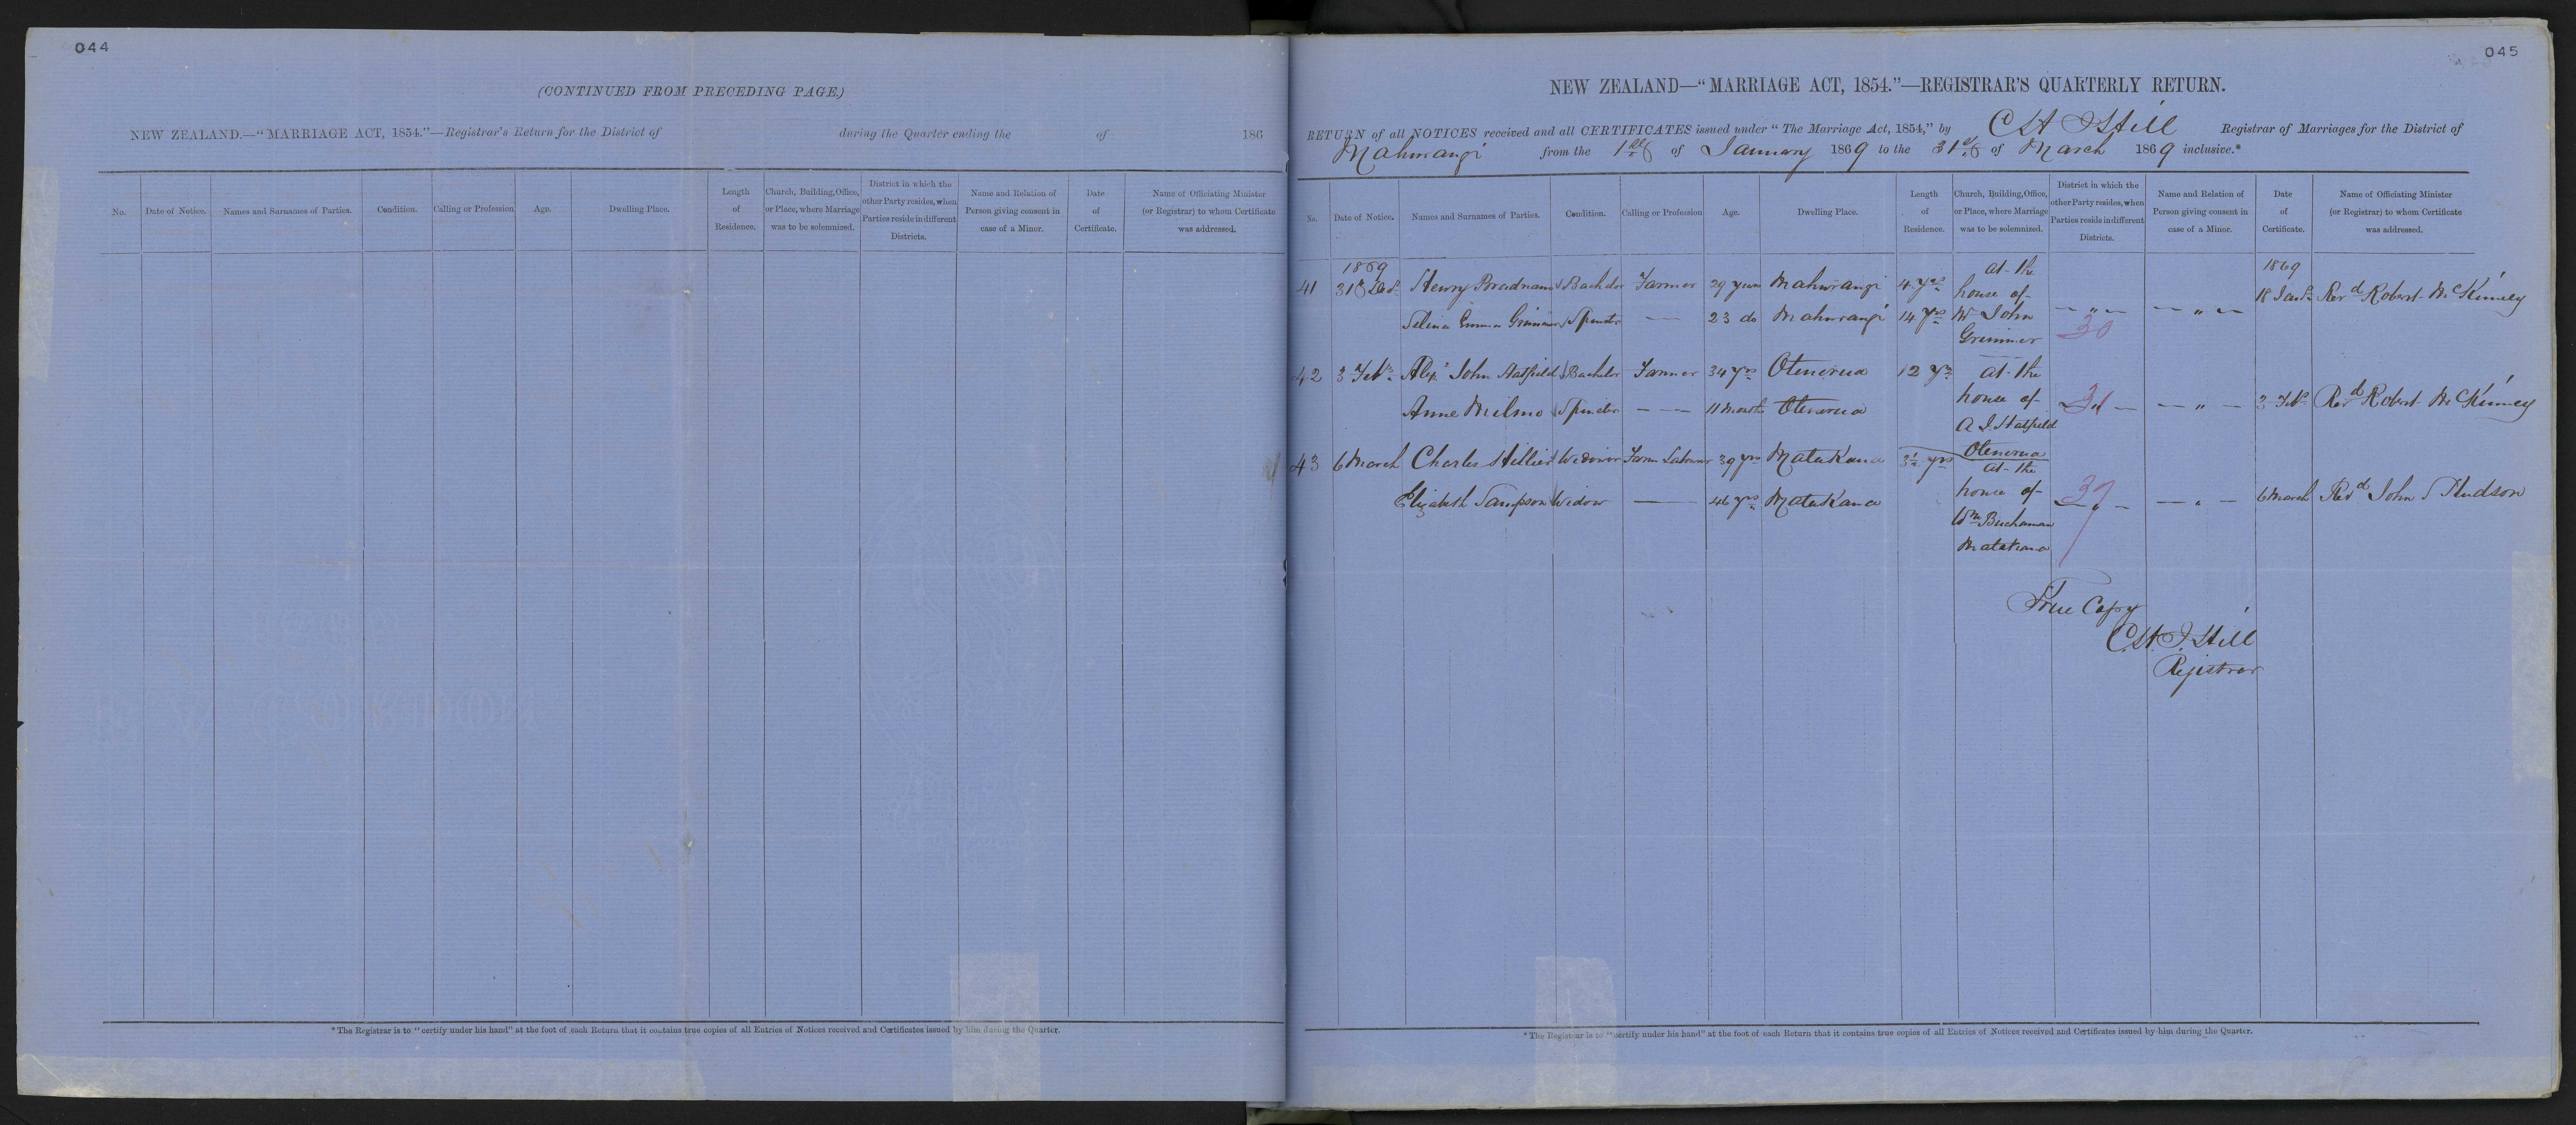 044
(CONTINUED FROM PRECEDING PAGE.)
NEW ZEALAND.—“MARRIAGE ACT, 1854.”—Registrar's Return for the District of during the Quarter ending the of 186
No.
Date of Notice.
Names and Surnames of Parties.
Condition.
Calling or Profession
Age.
Dwelling Place.
Length
of
Residence.
Church, Building, Office,
or Place, where Marriage
was to be solemnized.
District in which the
other Party resides, when
Parties reside in different
Districts.
Name and Relation of
Person giving consent in
case of a Minor.
Date
of
Certificate.
Name of Officiating Minister
(or Registrar) to whom Certificate
was addressed.
*The Registrar is to “certify under his hand” at the foot of each Return that it contains true copies of all Entries of Notices received and Certificates issued by him during the Quarter.
045
NEW ZEALAND—“MARRIAGE ACT, 1854.”—REGISTRAR'S QUARTERLY RETURN.
RETURN of all NOTICES received and all CERTIFICATES issued under “The Marriage Act, 1854,” by Registrar of Marriages for the District of
Mahurangi from the 1st of January 1869 to the 31st of March 1869 inclusive.*
No.
Date of Notice.
Names and Surnames of Parties.
Condition.
Calling or Profession
Age.
Dwelling Place.
Length
of
Residence.
Church, Building, Office,
or Place, where Marriage
was to be solemnized.
District in which the
other Party resides, when
Parties reside in different
Districts.
Name and Relation of
Person giving consent in
case of a Minor.
Date
of
Certificate.
Name of Officiating Minister
(or Registrar) to whom Certificate
was addressed.
1869 at the 1869
41 Henry Bachelor Farmer 29 years Mahurangi 4 yrs house of 18 Jany Revd Robert McKinney
Selina Emma Grimmer Spinster — 23 do Mahurangi 14 yrs Mr John — " — — " —
Grimmer 30
42 3 Feby Alexr John Hatfield Bachelor Farmer 34 yrs 12 yrs at the
Anne Milmo Spinster — — 11 months house of 31 — — " — 3 Feby Revd Robert McKinney
A J. Hatfield
43 6 March Charles Hillier Widower Farm Labourer 39 yrs Matakana 3½ yrs
at the
Elizabeth Sampson Widow — 46 yrs Matakana house of 37 — " — 6 March Revd John Hudson
Wm Buchanan
Matakana
True Copy
C. H. J. Hill
Registrar
*The Registrar is to “certify under his hand” at the foot of each Return that it contains true copies of all Entries of Notices received and Certificates issued by him during the Quarter.